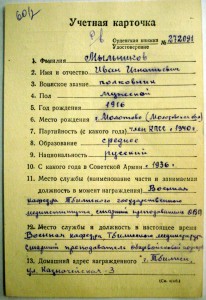 60/2
Учетная карточка
Орденская книжка № 272091
Удостоверение
1. Фамилия Мыльников
2. Имя и отчество Иван Игнатьевич
3. Воинское звание полковник
4. Пол мужской
5. Год рождения 1916
6. Место рождения г. Молотово
7. Партийность (с какого года) член КПСС с 1940 г.
8. Образование среднее
9. Национальность русский
10. С какого года в Советской Армии с 1936 г.
11. Место службы (наименование части и занимаемая
должность в момент награждения) Военная
кафедра Тбилисского государственного
мединститута, старший преподаватель
12. Место службы и должность в настоящее время
Военная кафедра Тбилисского мединститута,
старший преподаватель общевойсковой подгот.
13. Домашний адрес награжденного г. Тбилиси,
ул. Казначейская-3